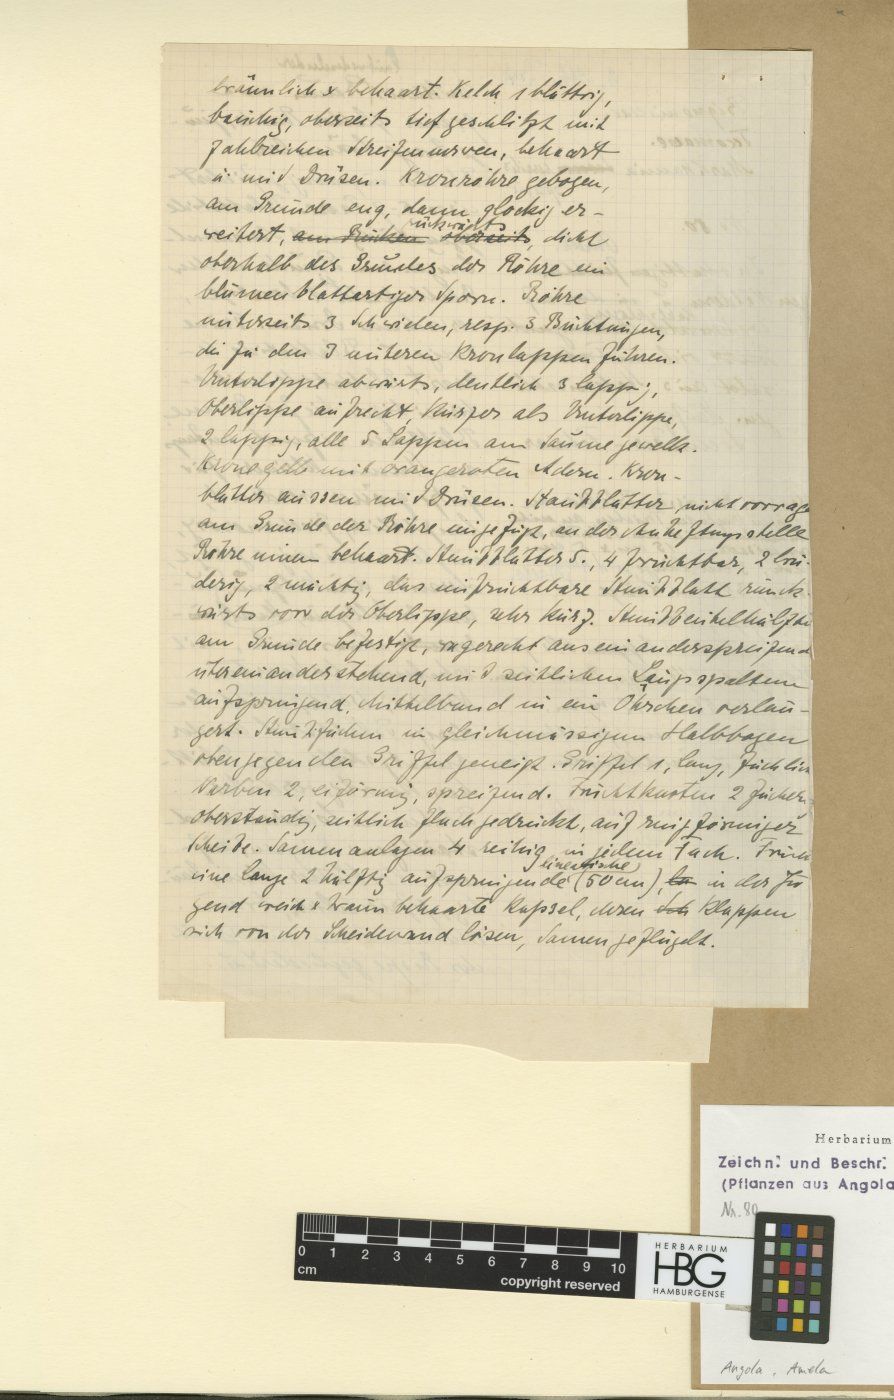 bräunlich behaart. Kelch 1 blättrig,
bauchig, oberseits tief geschlitzt mit
zahlreichen Streifennerven, behaart
u. mit Drüsen. Kronröhre gebogen,
am Grunde eng, dann glockig er-
rückwärts
weitert, am Rücken oberseits, dicht
oberhalb des Grundes der Röhre ein
blumenblattartiger Sporn. Röhre
unterseits 3 Schwielen, resp. 3 Buchtungen,
die zu den 3 unteren Kronlappen führen.
Unterlippe abwärts, deutlich 3 lappig,
Oberlippe aufrecht, kürzer als Unterlippe,
2 lappig, alle 5 Lappen am Saume gewellt.
Krone gelb mit orangeroten Adern. Kron-
blätter aussen mit Drüsen. Staubblätter nicht vorrage
am Grunde der Röhre eingefügt, an der Anheftungsstelle
Röhre innen behaart. Staubblätter 5., 4 fruchtbar, 2 brü-
derig, 2 mächtig, das unfruchtbare Staubblatt rück-
wärts vor der Oberlippe, sehr kurz. Staubbeutelhälfte
am Grunde befestigt, wagerecht auseinanderspreizend
untereinanderstehend, mit seitlichen Längsspalten
aufspringend. Mittelband in ein Öhrchen verlän-
gert. Staubfäden in gleichmässigem Halbbogen
oben gegen den Griffel geneigt. Griffel 1, lang, fädlich
Narben 2, eiförmig, spreizend. Fruchtknoten 2 fächer
oberständig, seitlich flach gedrückt, auf ringförmiger
Scheibe. Samenanlagen 4 reihig in jedem Fach. Fruch
linealische
eine lange 2 hälftig aufspringende (50 cm), in der Ju
gend weich braun behaarte Kapsel, deren Sch Klappen
sich von der Scheidewand lösen, Samen geflügelt.
Herbarium
Zeichn. und Beschr.
(Pflanzen aus Angola
Nr. 80
0 1 2 3 4 5 6 7 8 9 10
cm
copyright reserved
HERBARIUM
HBG
HAMBURGENSE
Angola, Amela